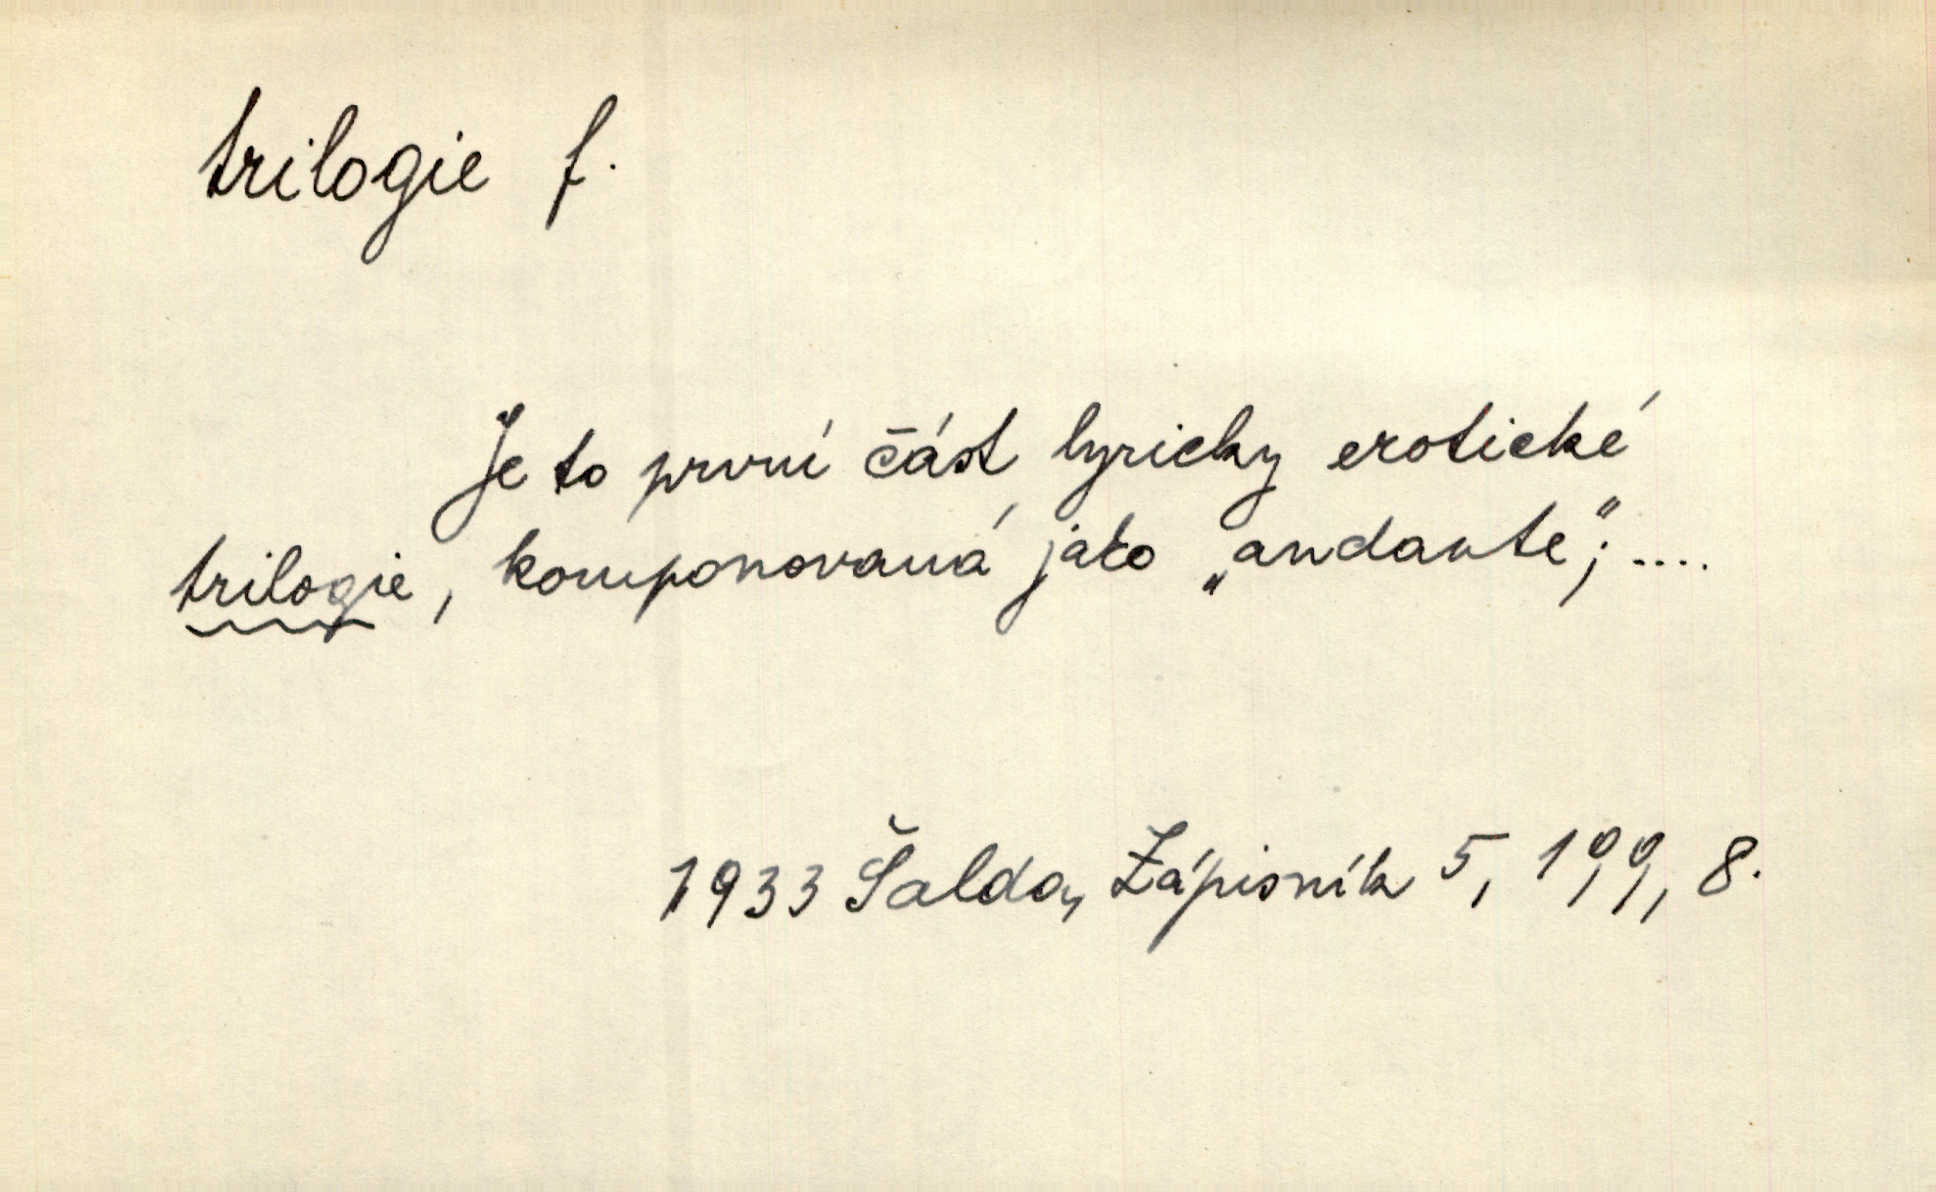 trilogie f.
Je to první část lyricky erotické
trilogie, komponovaná jako „andante“; ....
1933 Šalda, Zápisník 5, 199, 8.